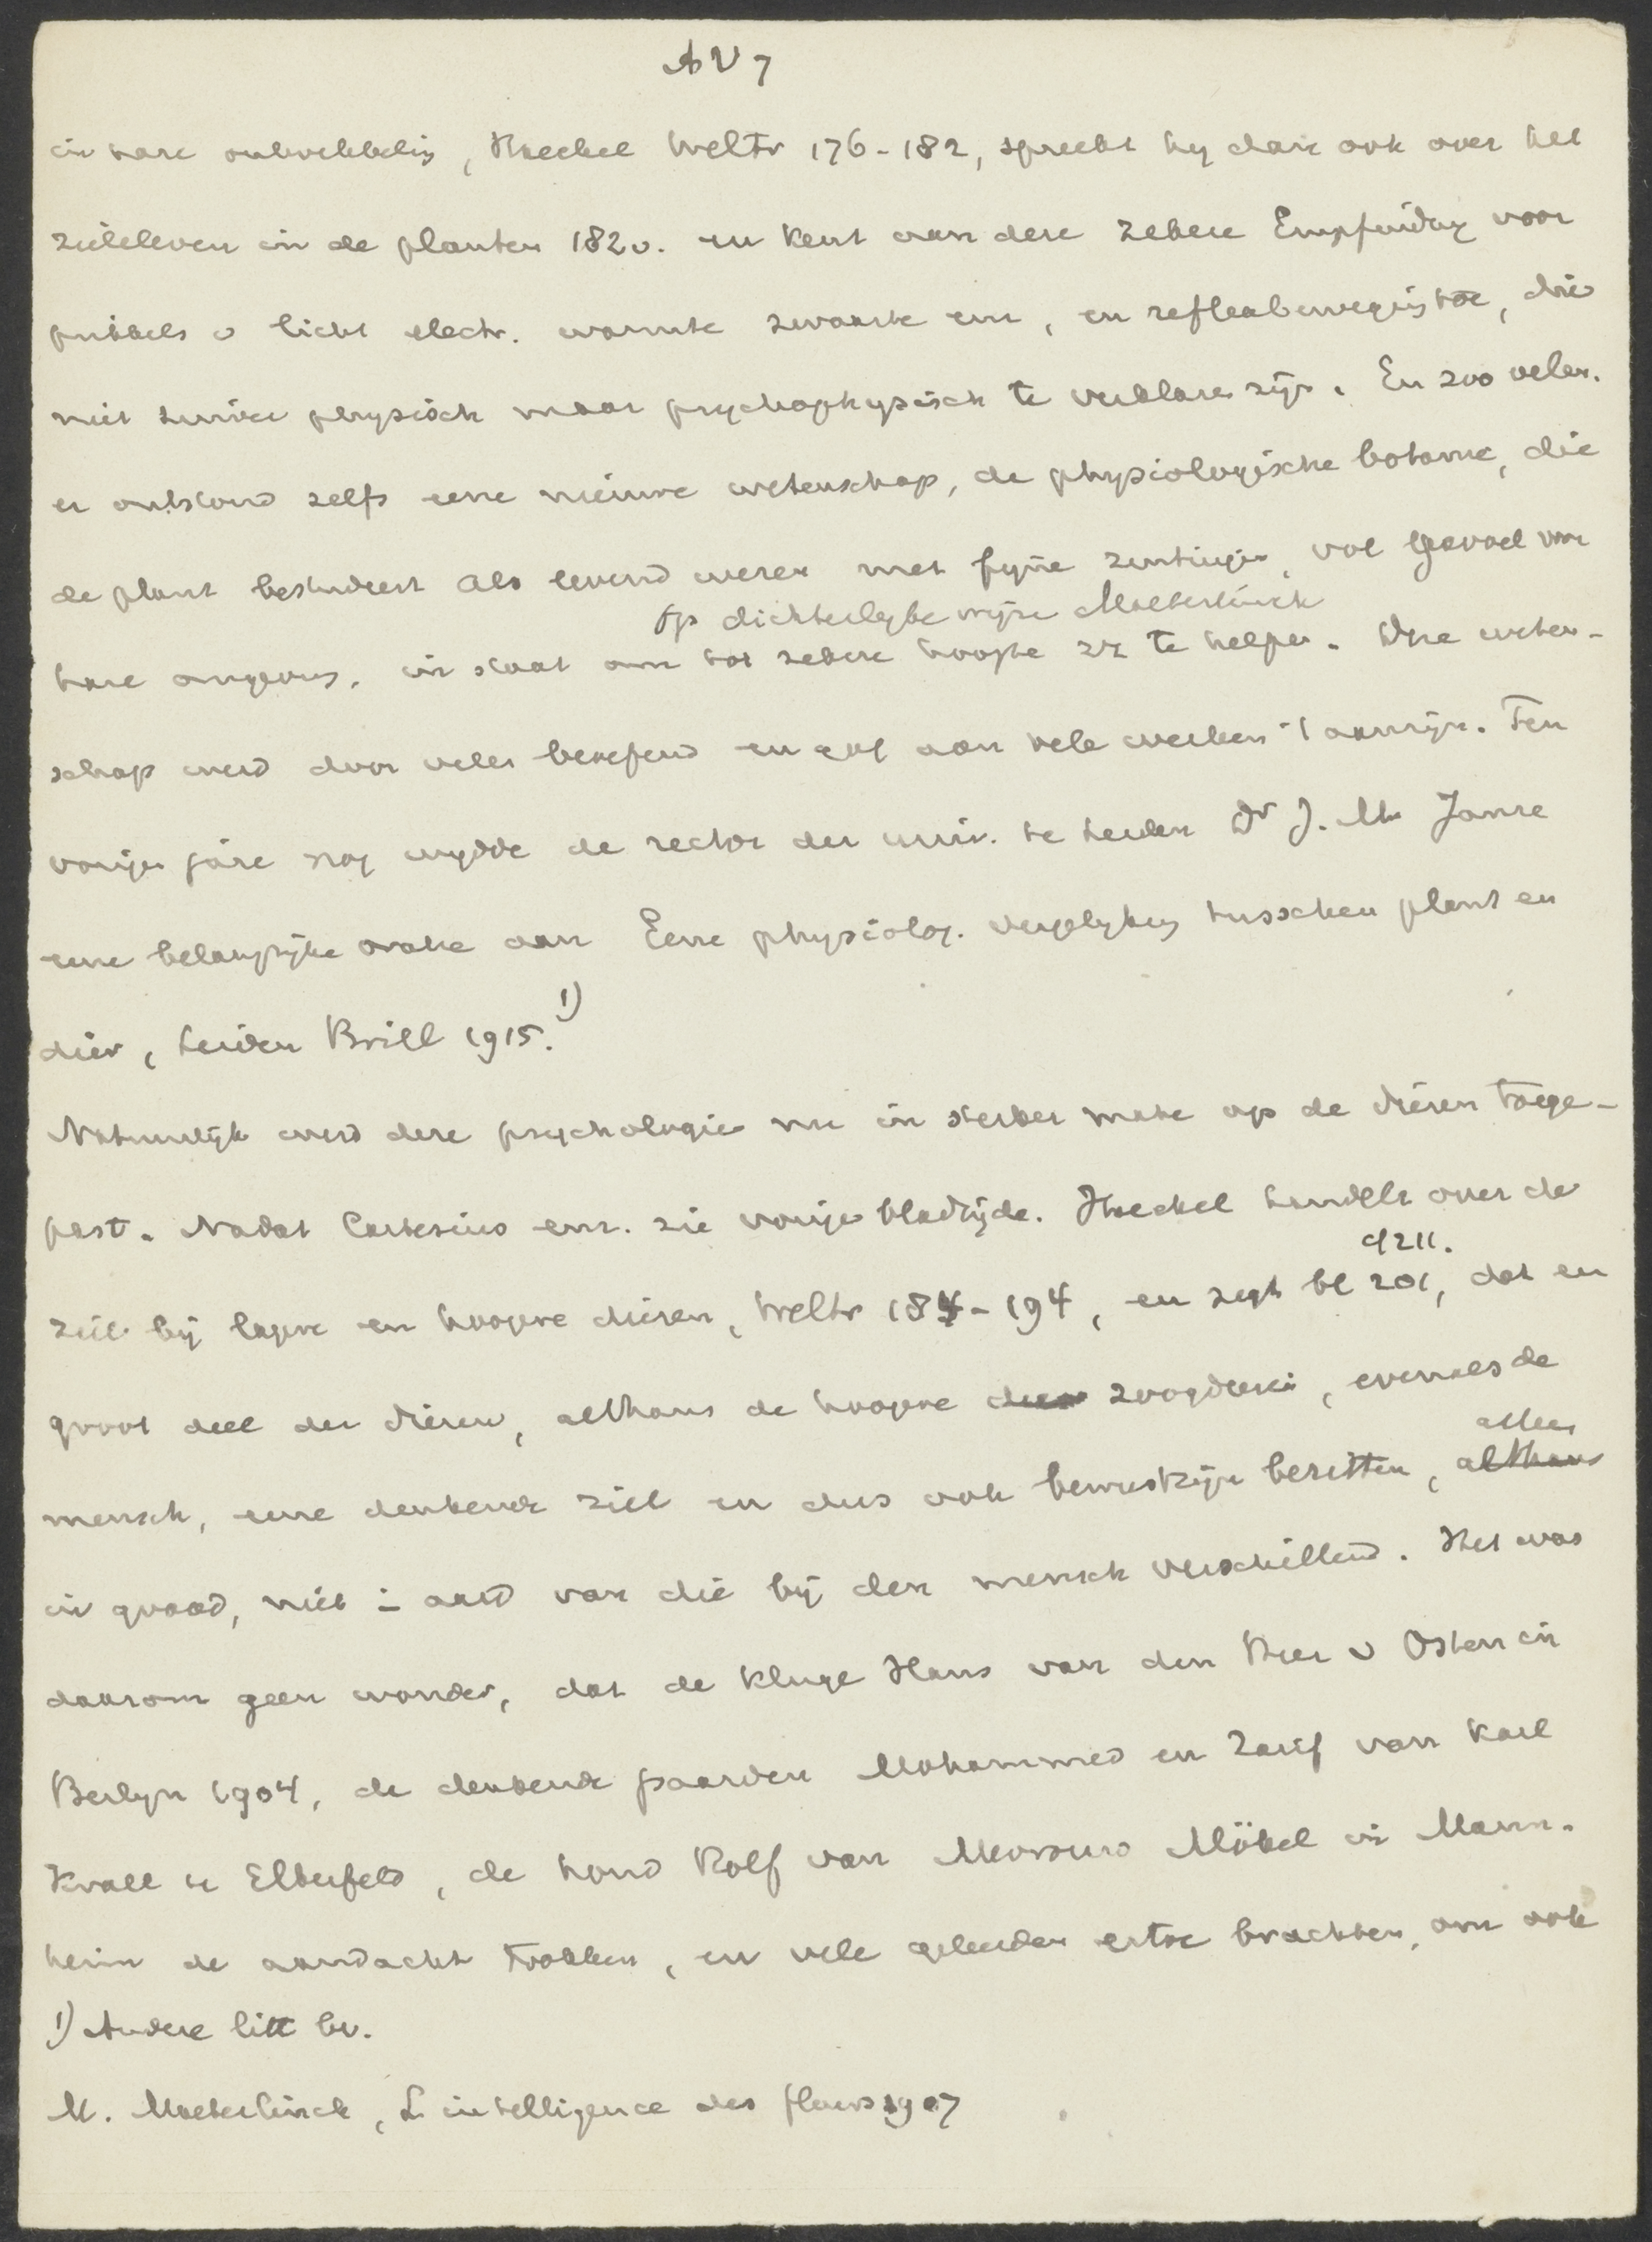 AV 7
in hare ontwikkeling, Haeckel Weltr 176-182, spreekt hy dan ook over het
zieleleven in de planten 182v. en kent aan deze zekere Empfindg voor
prikkels v licht electr. warmte zwaarte enz, en reflexbeweging toe, die
niet zuiver physisch maar psychophysisch te verklaren zijn. En zoo velen.
er ontstond zelfs eene nieuwe wetenschap, de physiologische botanie, die
de plant bestudeert als levend wezen met fijne zintuigen, vol gevoel voor
op dichterlyke wijze Maeterlinck
hare omgeving, in staat om tot zekere hoogte zz te helpen. Die weten-
schap werd door velen beoefend en gaf aan vele werken 't aanzijn. Ten
vorigen jare nog wydde de rector der univ. te Leiden Dr J. M. Janse
eene belangrijke oratie aan Eene physiolog. vergelyking tusschen plant en
dier, Leiden Brill 1915. 1)
Natuurlijk werd deze psychologie nu in sterker mate op de dieren toege-
past. Nadat Cartesius enz. zie vorige bladzijde. Haeckel handelt over de
cf 211.
ziel bij lagere en hoogere dieren, Weltr 184-194, en zegt bl 201, dat een
groot deel der dieren, althans de hoogere dieren zoogdieren, evenals de
alleen
mensch, eene denkende ziel en dus ook bewustzijn bezitten, althans
in graad, niet in aard van die bij den mensch verschillend. Het was
daarom geen wonder, dat de kluge Hans van den Heer v Osten in
Berlyn 1904, de denkende paarden Mohammed en Zarif van Karl
Krall te Elberfeld, de hond Rolf van Mevrouw Mökel in Mann-
heim de aandacht trokken, en vele geleerden ertoe brachten, om ook
1) Andere litt bv.
M. Maeterlinck, L intelligence des fleurs 1907